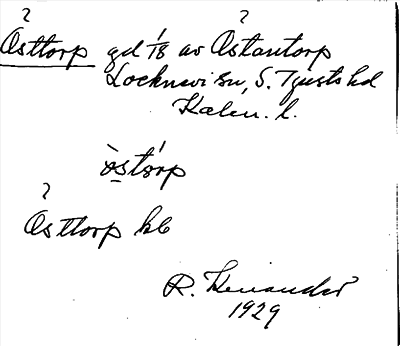 ?
Östtorp gd 1/8 av Östantorp ?
Locknevi sn, S. Tjusts hd
Kalm. l.
östo̩rp
?
Östtorp hb
R. Kenander
1929